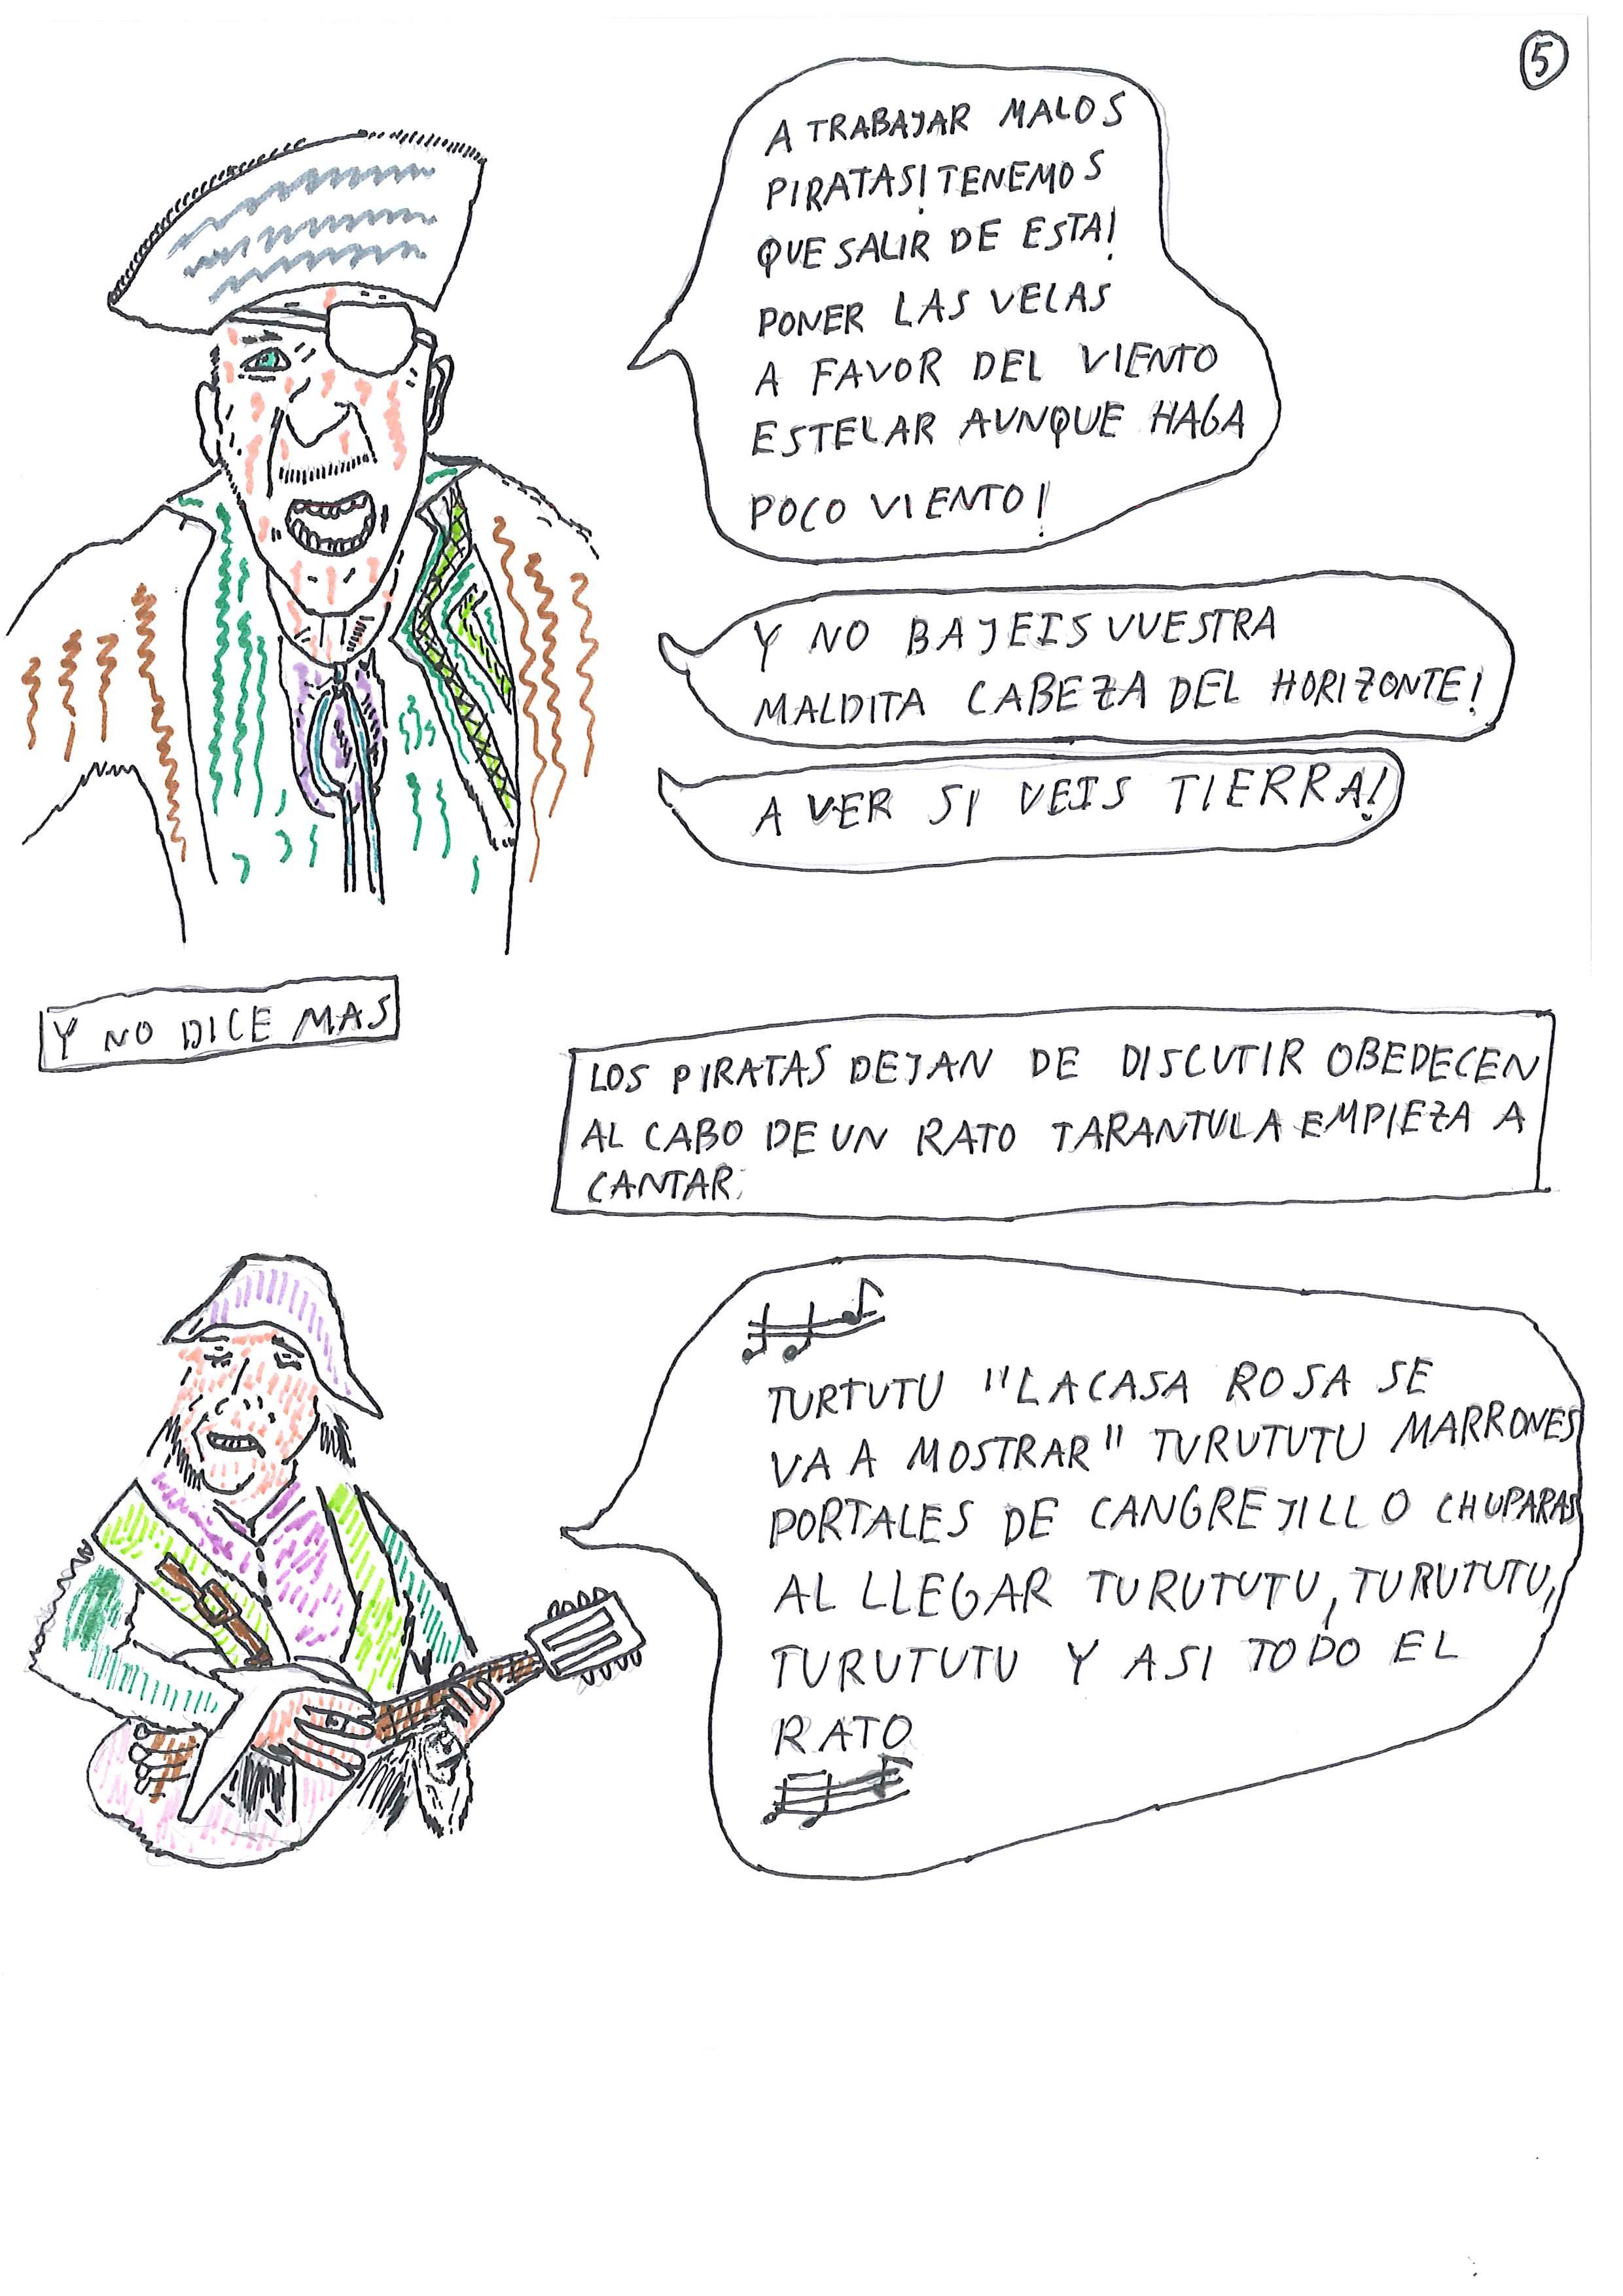 5
A TRABAJAR MALOS
PIRATAS! TENEMOS
QUE SALIR DE ESTA!
PONER LAS VELAS
A FAVOR DEL VIENTO
ESTELAR AUNQUE HAGA
POCO VIENTO!
Y NO BAJEIS VUESTRA
MALDITA CABEZA DEL HORIZONTE!
A VER SI VEIS TIERRA!
Y NO DICE MAS
LOS PIRATAS DEJAN DE DISCUTIR OBEDECEN
AL CABO DE UN RATO TARANTULA EMPIEZA A
CANTAR:
TURTUTU "LA CASA ROSA SE
VA A MOSTRAR" TURUTUTU MARRONES
PORTALES DE CANGREJILLO CHUPARAS
AL LLEGAR TURUTUTU, TURUTUTU,
TURUTUTU Y ASI TODO EL
RATO